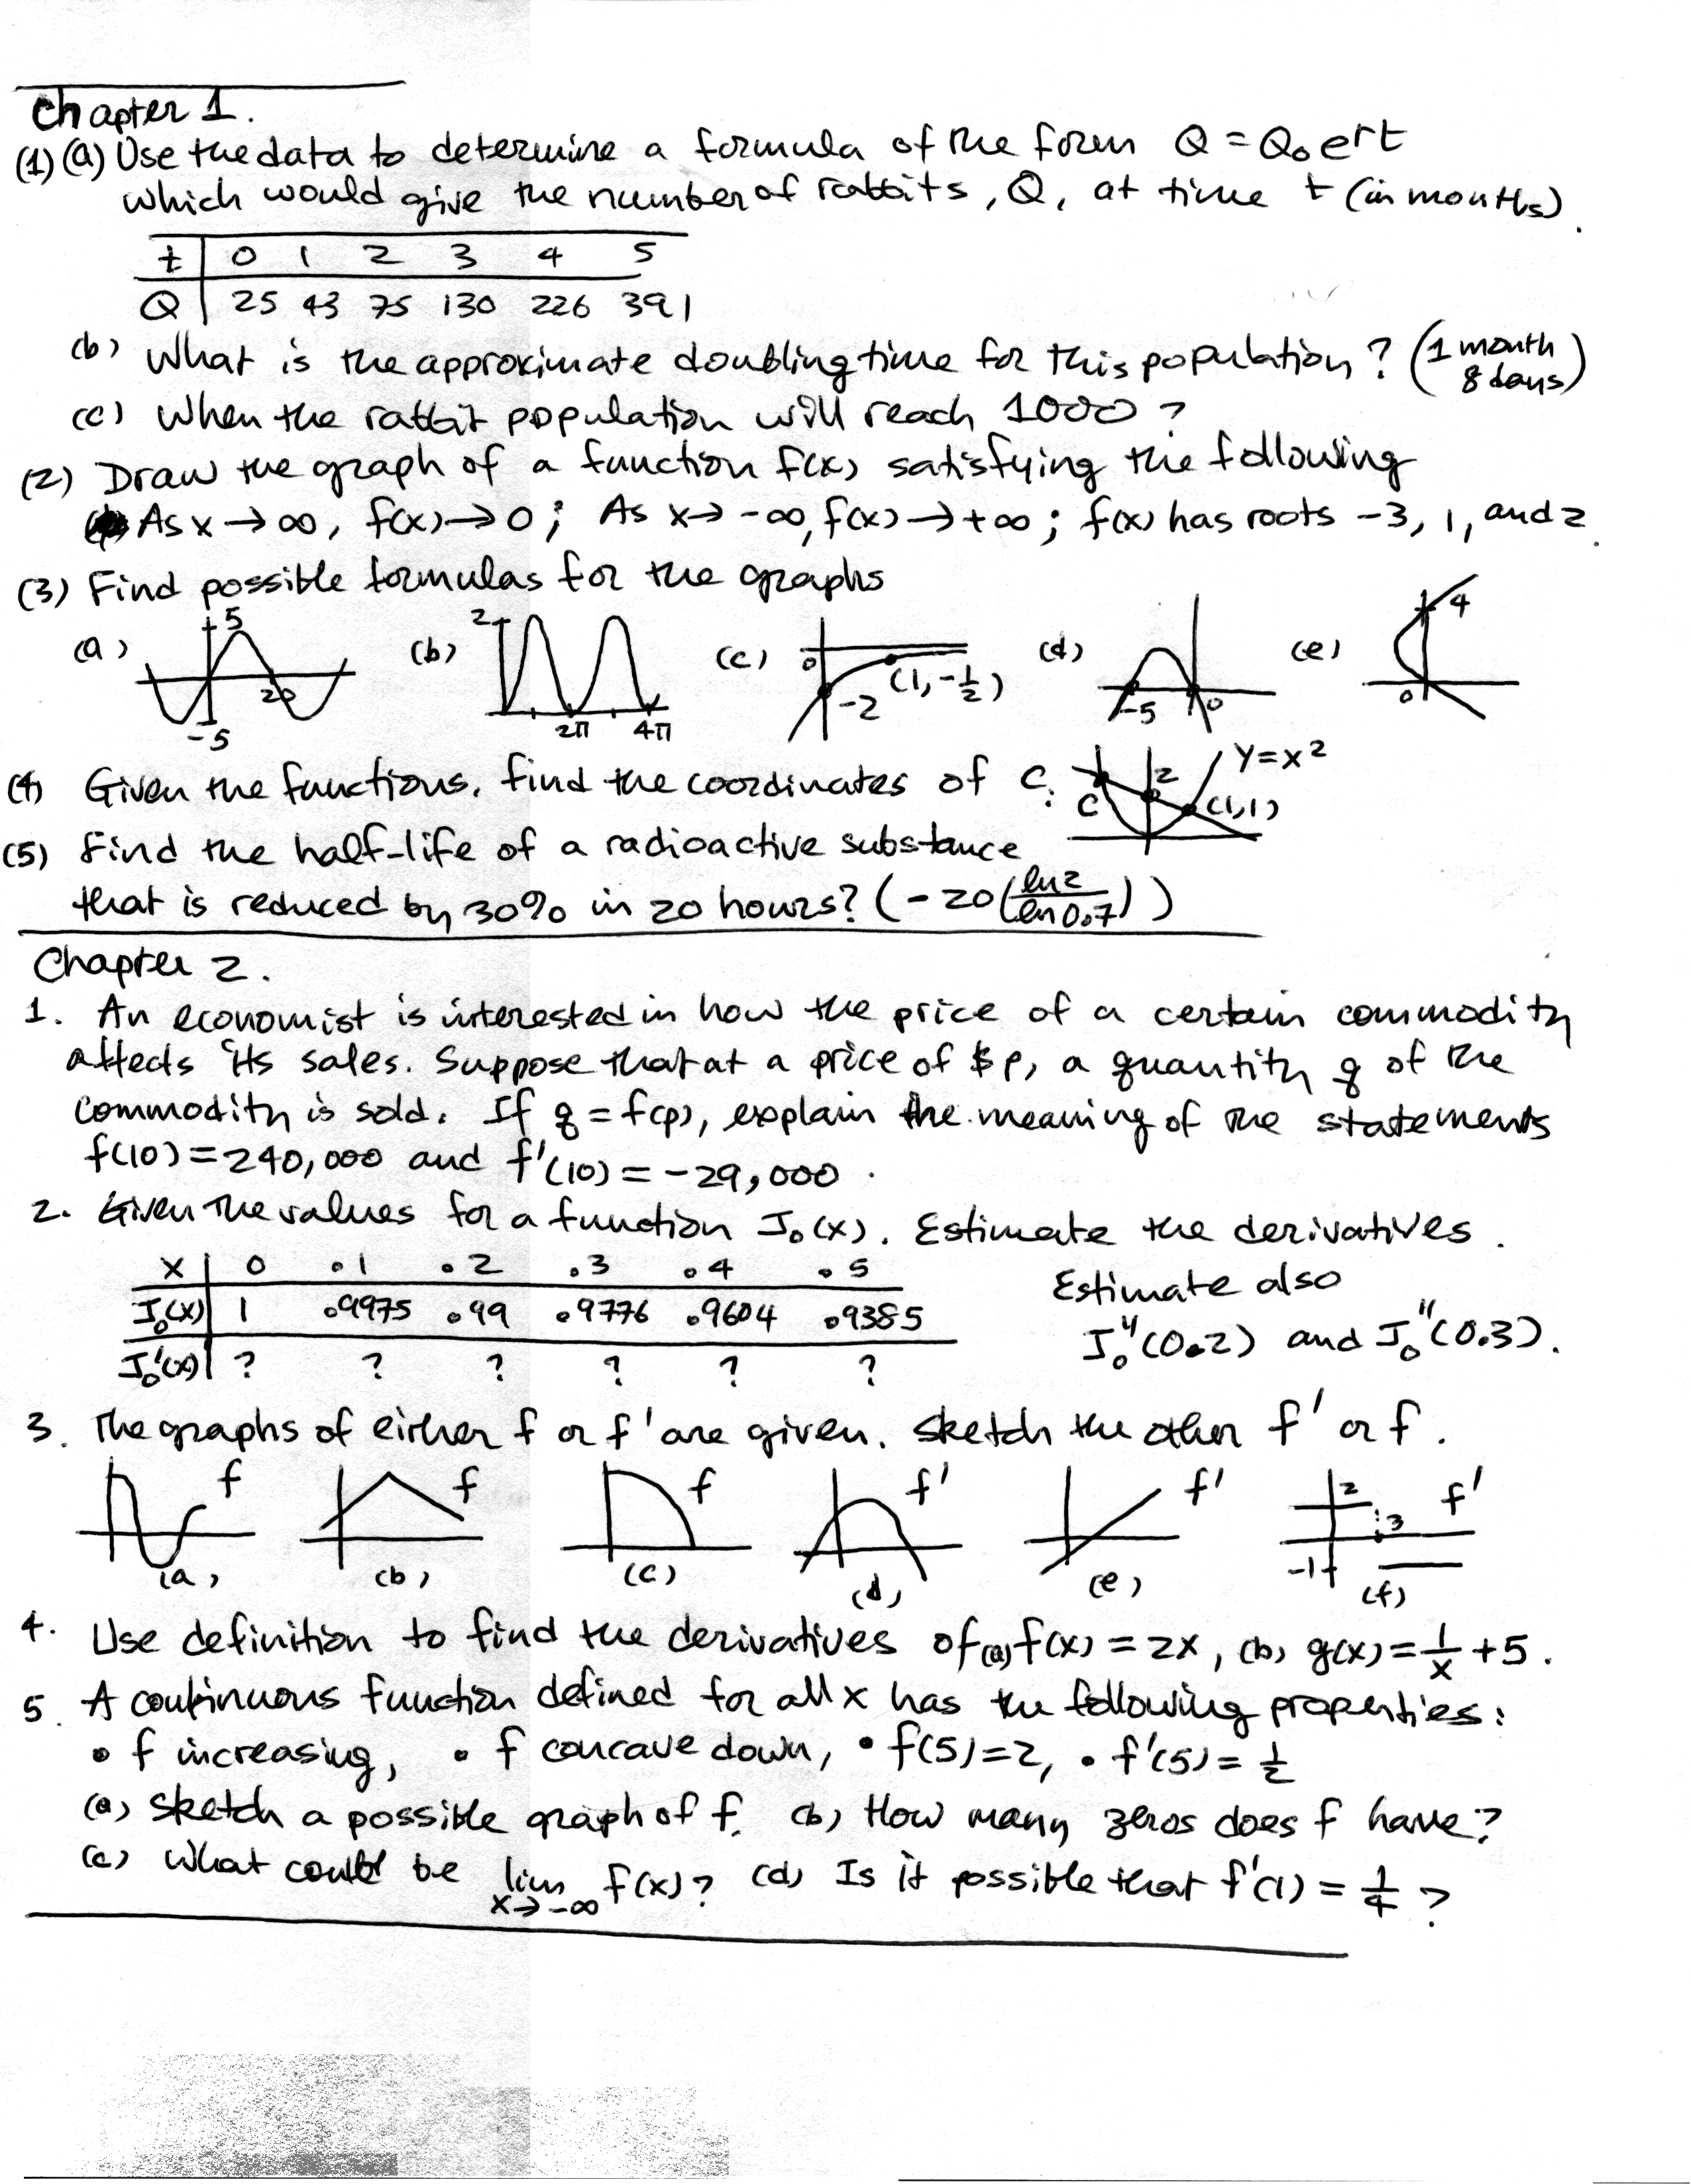 Chapter 1.
(1) (a) Use the data to determine a formula of the form Q = Q₀ e^rt
which would give the number of rabbits, Q, at time t (in months).
t | 0 1 2 3 4 5
Q | 25 43 75 130 226 391
(b) What is the approximate doubling time for this population? (1 month 8 days)
(c) When the rabbit population will reach 1000?
(2) Draw the graph of a function f(x) satisfying the following
As x → ∞, f(x) → 0; As x → -∞, f(x) → +∞; f(x) has roots -3, 1, and 2.
(3) Find possible formulas for the graphs
(a) 5 20 -5 (b) 2 2π 4π (c) 0 -2 (1, -1/2) (d) -5 0 (e) 4 0
(4) Given the functions, find the coordinates of C. C 2 (1,1) y = x²
(5) Find the half-life of a radioactive substance
that is reduced by 30% in 20 hours? (-20 (ln 2 / ln 0.7))
Chapter 2.
1. An economist is interested in how the price of a certain commodity
affects its sales. Suppose that at a price of $p, a quantity q of the
commodity is sold. If q = f(p), explain the meaning of the statements
f(10) = 240,000 and f'(10) = -29,000.
2. Given the values for a function J₀(x). Estimate the derivatives.
x | 0 .1 .2 .3 .4 .5
J₀(x) | 1 .9975 .99 .9776 .9604 .9385
J₀'(x) | ? ? ? ? ? ?
Estimate also
J₀''(0.2) and J₀''(0.3).
3. The graphs of either f or f' are given. Sketch the other f' or f.
f f f f' f' 2 3 -1 f'
(a) (b) (c) (d) (e) (f)
4. Use definition to find the derivatives of (a) f(x) = 2x, (b) g(x) = 1/x + 5.
5. A continuous function defined for all x has the following properties:
• f increasing, • f concave down, • f(5) = 2, • f'(5) = 1/2
(a) Sketch a possible graph of f. (b) How many zeros does f have?
(c) What could be lim x→-∞ f(x)? (d) Is it possible that f'(1) = 1/4?